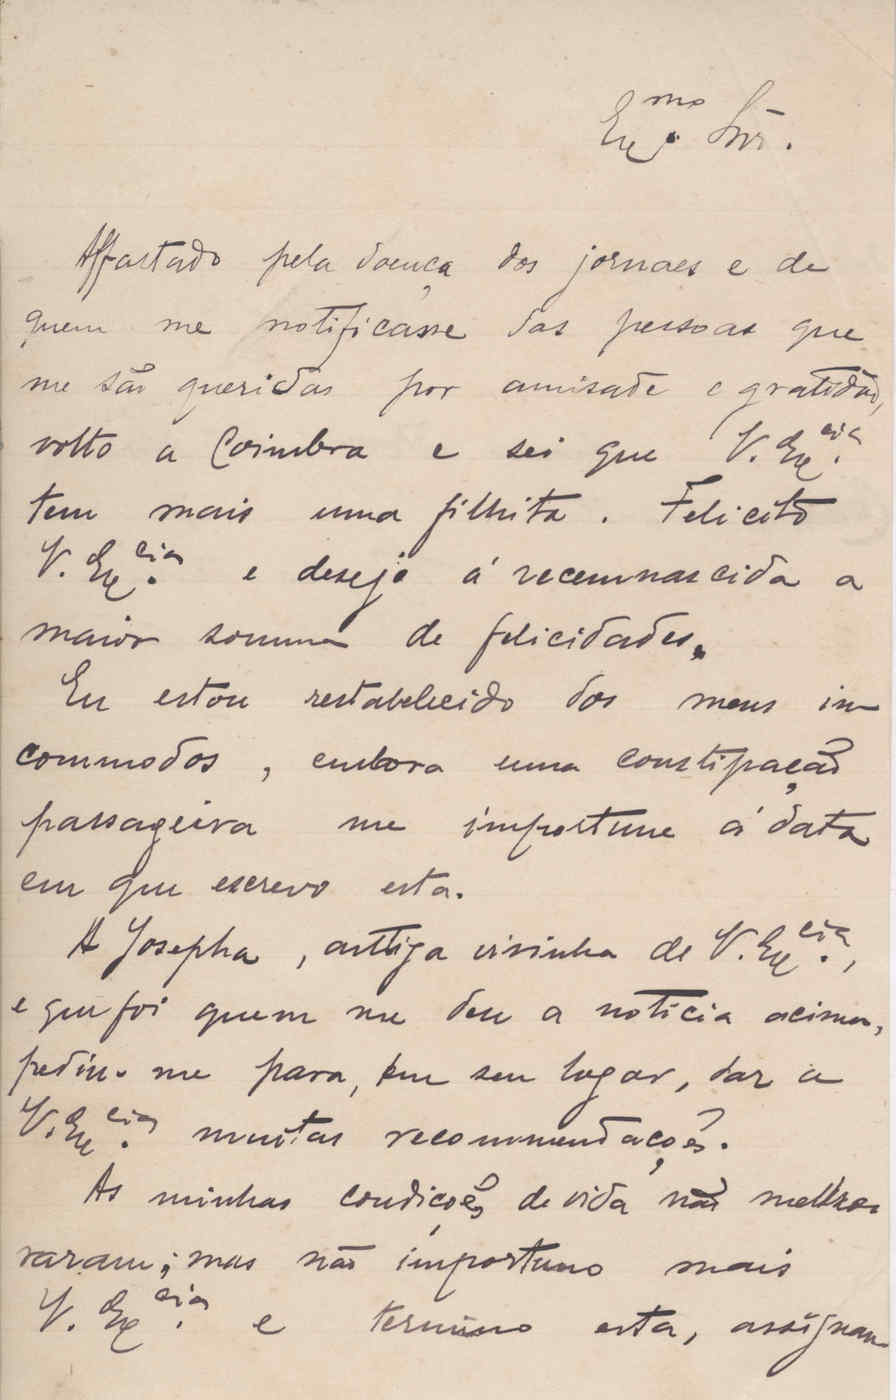 Ex.mo Snr.
Affastado pela doença dos jornaes e de
quem me notificasse das pessoas que
me são queridas por amisade e gratidão,
volto a Coimbra e sei que V. Ex.cia
tem mais uma filhita. Felicito
V. Ex.cia e desejo á recemnascida a
maior somma de felicidades.
Eu estou restabelecido dos meus in
commodos, embora uma constipação
passageira me importune á data
em que escrevo esta.
A Josepha, antiga visinha de V. Ex.cia,
e que foi quem me deu a noticia acima,
pediu-me para, em seu logar, dar a
V. Ex.cia muitas recommendações.
As minhas condições de vida não melho-
raram; mas não importuno mais
V. Ex.cia e termino esta, assignan